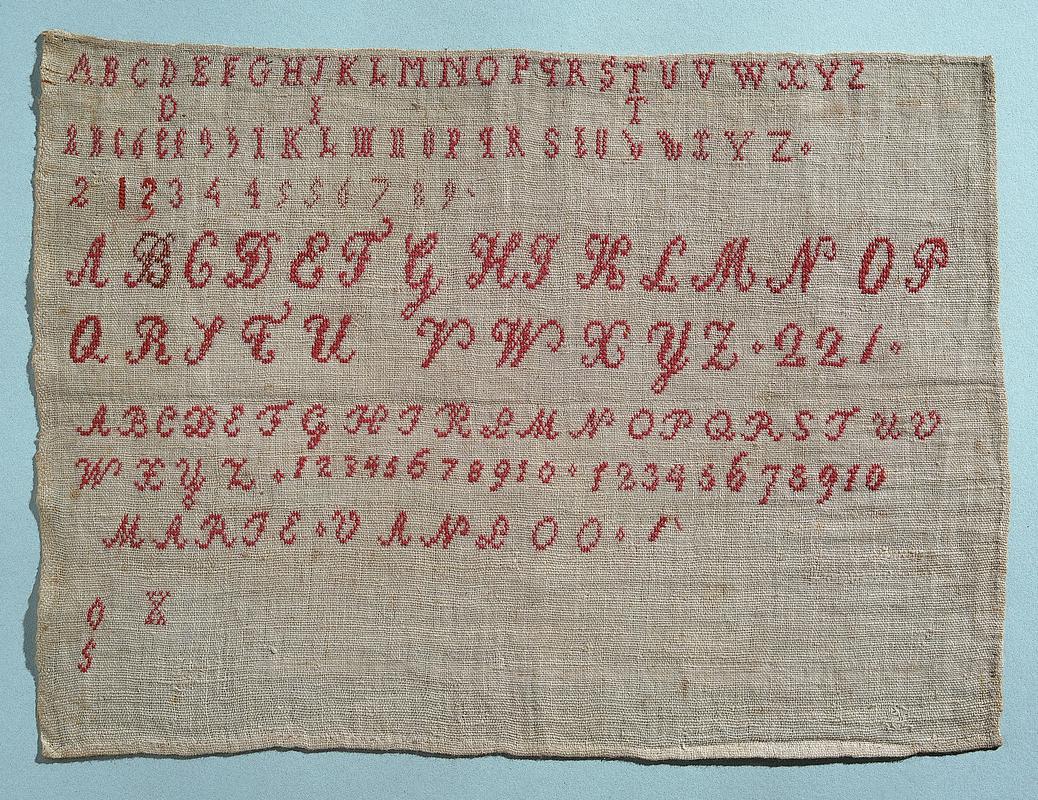 A B C D E F G H I K L M N O P Q R S T U V W X Y Z
D I T
I K L M N O P Q R S T U V W X Y Z
2 1 2 3 4 4 5 5 6 7 8 9
A B C D E F G H I K L M N O P
Q R S T U V W X Y Z 2 2 1
A B C D E F G H I K L M N O P Q R S T U V
W X Y Z 1 2 3 4 5 6 7 8 9 1 0 1 2 3 4 5 6 7 8 9 1 0
M A R I E V A N L O O
O X
S